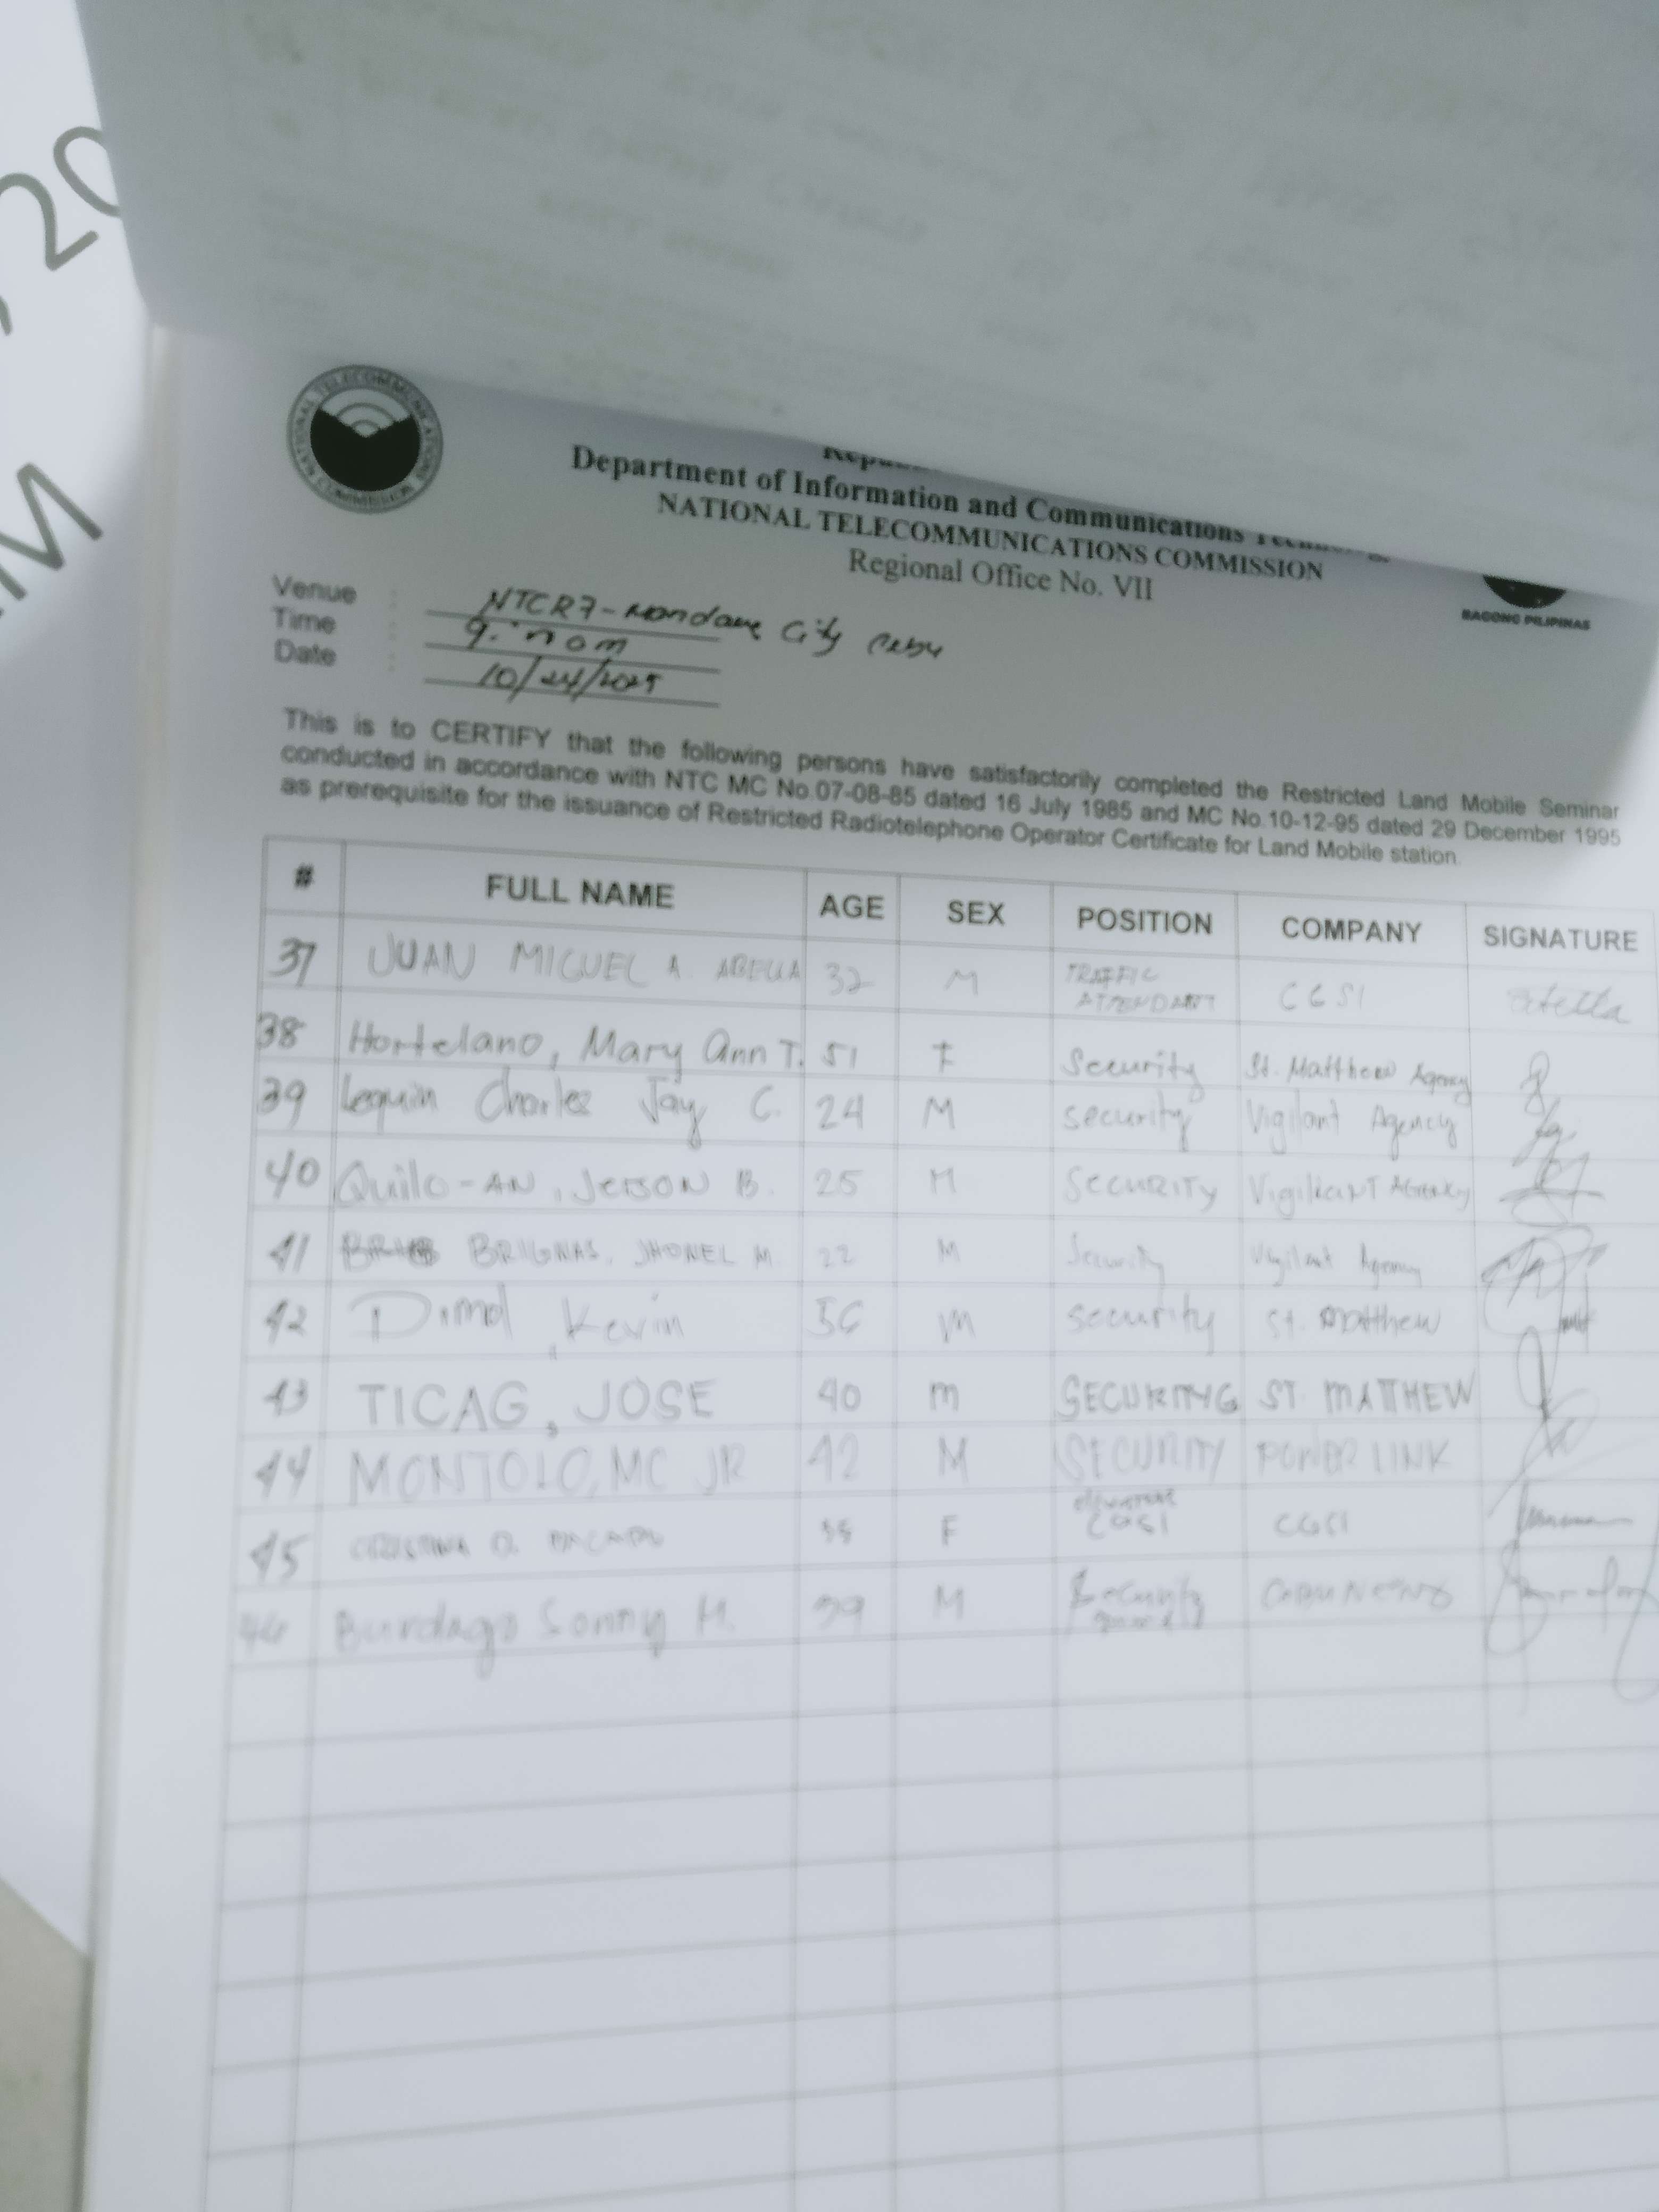 20
M
NATIONAL TELECOMMUNICATIONS COMMISSION
Department of Information and Communications
NATIONAL TELECOMMUNICATIONS COMMISSION
Regional Office No. VII
BAGONG PILIPINAS
Venue : NTCR7- City Cebu
Time :
Date : 10/24/2025
This is to CERTIFY that the following persons have satisfactorily completed the Restricted Land Mobile Seminar
conducted in accordance with NTC MC No.07-08-85 dated 16 July 1985 and MC No.10-12-95 dated 29 December 1995
as prerequisite for the issuance of Restricted Radiotelephone Operator Certificate for Land Mobile station.
# FULL NAME AGE SEX POSITION COMPANY SIGNATURE
37 JUAN MIGUEL A ABELLA 32 M TRAFFIC ATTENDANT CGSI
38 Hortelano, Mary Ann T. 51 F Security St. Matthew Agency
39 Lequin Charles Jay C. 24 M security Vigilant Agency
40 Quilo-AN, JERSON B. 25 M SECURITY VigilANT AGENCY
41 BRIGNAS, JHONEL M. 22 M Security Vigilant Agency
42 Kevin M security St. Matthew
43 TICAG, JOSE 40 M ST. MATTHEW
44 MONTOLO, MC JR 42 M SECURITY POWER LINK
45 F CGSI CGSI
46 Burdago Sonny M. 39 M Security guard